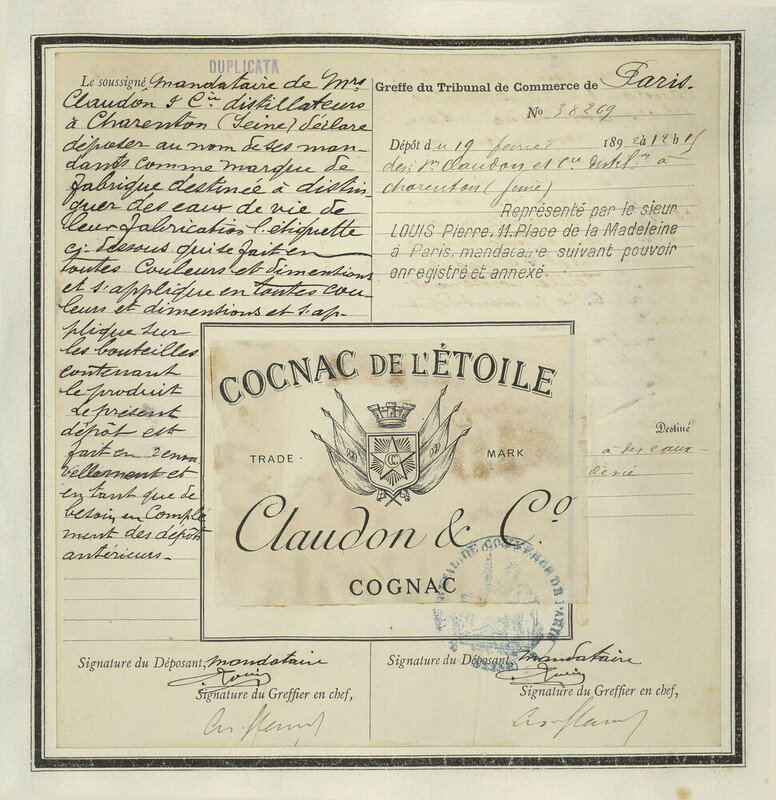 DUPLICATA
Le soussigné, mandataire de Mrs
Claudon & Cie distillateurs
à Charenton (Seine) déclare
déposer au nom de ses man-
dants comme marque de
fabrique destinée à distin-
guer des eaux de vie de
leur fabrication l'étiquette
ci-dessous qui se fait en
toutes couleurs et dimensions
et s'applique en toutes cou-
leurs et dimensions et s'ap-
plique sur
les bouteilles
contenant
le produit
Le présent
dépôt est
fait en renou
vellement et
en tant que de
besoin en Complé
ment des dépôts
antérieurs.
Greffe du Tribunal de Commerce de Paris.
No 38269
Dépôt du 19 février 1892 à 12 h 15
des Mrs Claudon et Cie à
charenton (Seine)
Représenté par le sieur
LOUIS Pierre, 11. Place de la Madeleine
à Paris, mandataire suivant pouvoir
enregistré et annexé
Destiné
à des eaux
de vie
COGNAC DE L'ÉTOILE
TRADE MARK
CC
Claudon & Co.
COGNAC
Signature du Déposant, mandataire
Louis
Signature du Greffier en chef,
Signature du Déposant, mandataire
Louis
Signature du Greffier en chef,